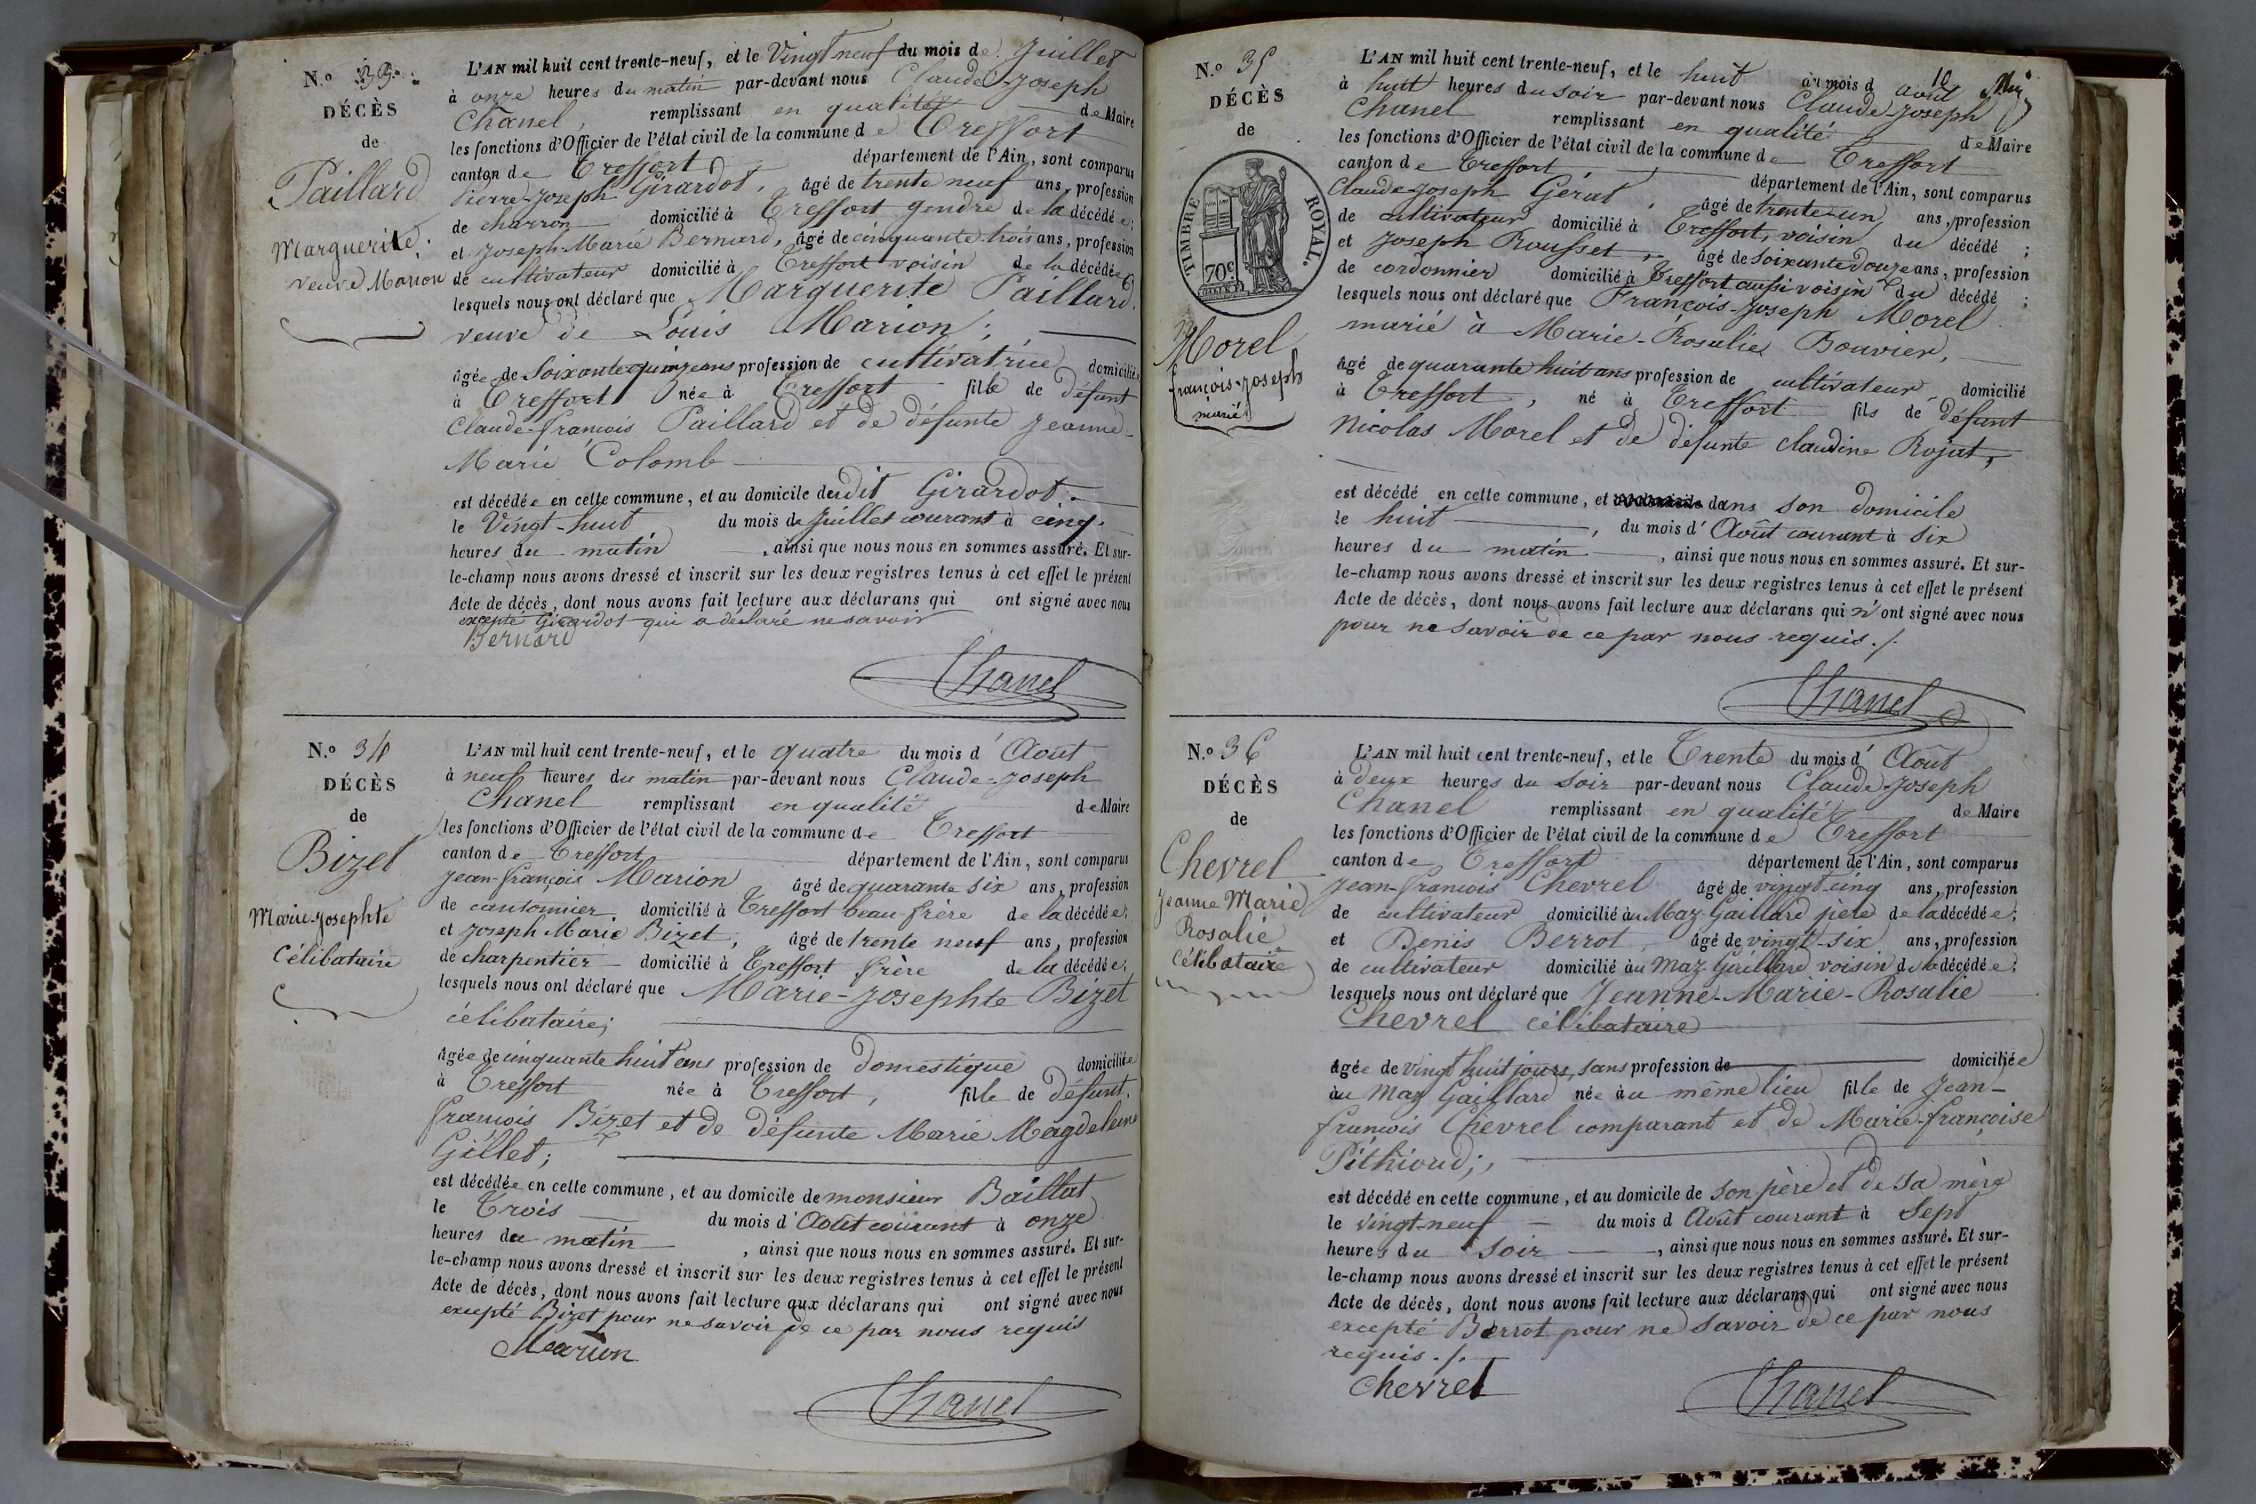 N.o 33.
DÉCÈS
de
Paillard
Marguerite.
veuve Marion
L'AN mil huit cent trente-neuf, et le Vingt neuf du mois de Juillet
à onze heures du matin par-devant nous Claude-Joseph
Chanel, remplissant en qualité de Maire
les fonctions d'Officier de l'état civil de la commune de Treffort
canton de Treffort département de l'Ain, sont comparus
Pierre-Joseph Girardot, âgé de trente neuf ans, profession
de charron domicilié à Treffort gendre de la décédée;
et Joseph-Marie Bernard, âgé de cinquante-trois ans, profession
de cultivateur domicilié à Treffort voisin de la décédée
lesquels nous ont déclaré que Marguerite Paillard,
veuve de Louis Marion;
âgée de soixante quinze ans profession de cultivatrice domiciliée
à Treffort née à Treffort fille de défunt
Claude-françois Paillard et de défunte Jeanne-
Marie Colomb
est décédée en cette commune, et au domicile dudit Girardot.
le Vingt-huit du mois de Juillet courant à cinq
heures du matin, ainsi que nous nous en sommes assuré. Et sur-
le-champ nous avons dressé et inscrit sur les deux registres tenus à cet effet le présent
Acte de décès, dont nous avons fait lecture aux déclarans qui ont signé avec nous
excepté Girardot qui a déclaré ne savoir
Bernard
Chanel
N.o 34
DÉCÈS
de
Bizet
Marie-Josephte
Célibataire
L'AN mil huit cent trente-neuf, et le quatre du mois d'Août
à neuf heures du matin par-devant nous Claude-Joseph
Chanel remplissant en qualité de Maire
les fonctions d'Officier de l'état civil de la commune de Treffort
canton de Treffort département de l'Ain, sont comparus
Jean-françois Marion âgé de quarante six ans, profession
de cantonnier, domicilié à Treffort beau-frère de la décédée;
et Joseph Marie Bizet, âgé de trente neuf ans, profession
de charpentier domicilié à Treffort frère de la décédée;
lesquels nous ont déclaré que Marie-Josephte Bizet
célibataire;
âgée de cinquante huit ans profession de domestique domiciliée
à Treffort née à Treffort, fille de défunt
françois Bizet et de défunte Marie Magdeleine
Gillet;
est décédée en cette commune, et au domicile de monsieur Baillat
le Trois du mois d'Août courant à onze
heures du matin, ainsi que nous nous en sommes assuré. Et sur-
le-champ nous avons dressé et inscrit sur les deux registres tenus à cet effet le présent
Acte de décès, dont nous avons fait lecture aux déclarans qui ont signé avec nous
excepté Bizet pour ne savoir de ce par nous requis
Marion
Chanel
N.o 35
DÉCÈS
de
TIMBRE ROYAL.
70c
Morel
françois-Joseph
marié
10
L'AN mil huit cent trente-neuf, et le huit du mois d août
à huit heures du soir par-devant nous Claude-Joseph
Chanel remplissant en qualité de Maire
les fonctions d'Officier de l'état civil de la commune de Treffort
canton de Treffort, département de l'Ain, sont comparus
Claude-Joseph Gérat, âgé de trente-un ans, profession
de cultivateur domicilié à Treffort, voisin du décédé;
et Joseph Rousset, âgé de soixante douze ans, profession
de cordonnier domicilié à Treffort aussi voisin du décédé;
lesquels nous ont déclaré que François-Joseph Morel
marié à Marie-Rosalie Bouvier,
âgé de quarante huit ans profession de cultivateur domicilié
à Treffort, né à Treffort fils de défunt
Nicolas Morel et de défunte claudine Rojat,
est décédé en cette commune, et dans son domicile
le huit, du mois d'Août courant à six
heures du matin, ainsi que nous nous en sommes assuré. Et sur-
le-champ nous avons dressé et inscrit sur les deux registres tenus à cet effet le présent
Acte de décès, dont nous avons fait lecture aux déclarans qui n'ont signé avec nous
pour ne savoir de ce par nous requis./.
Chanel
N.o 36
DÉCÈS
de
Chevrel
Jeanne Marie
Rosalie
Célibataire
L'AN mil huit cent trente-neuf, et le Trente du mois d'Août
à deux heures du soir par-devant nous Claude-Joseph
Chanel remplissant en qualité de Maire
les fonctions d'Officier de l'état civil de la commune de Treffort
canton de Treffort département de l'Ain, sont comparus
Jean-françois Chevrel âgé de vingt-cinq ans, profession
de cultivateur domicilié au Maz-Gaillard père de la décédée;
et Denis Berrot, âgé de vingt-six ans, profession
de cultivateur domicilié au Maz-Gaillard voisin de la décédée;
lesquels nous ont déclaré que Jeanne-Marie-Rosalie
Chevrel célibataire
âgée de vingt huit jours, sans profession de domiciliée
au Maz Gaillard née au même lieu fille de Jean-
françois Chevrel comparant et de Marie-françoise
Pithioud;
est décédé en cette commune, et au domicile de son père et de sa mère
le vingt-neuf du mois d Août courant à sept
heures du soir, ainsi que nous nous en sommes assuré. Et sur-
le-champ nous avons dressé et inscrit sur les deux registres tenus à cet effet le présent
Acte de décès, dont nous avons fait lecture aux déclarans qui ont signé avec nous
excepté Berrot pour ne savoir de ce par nous
requis./.
Chevrel
Chanel